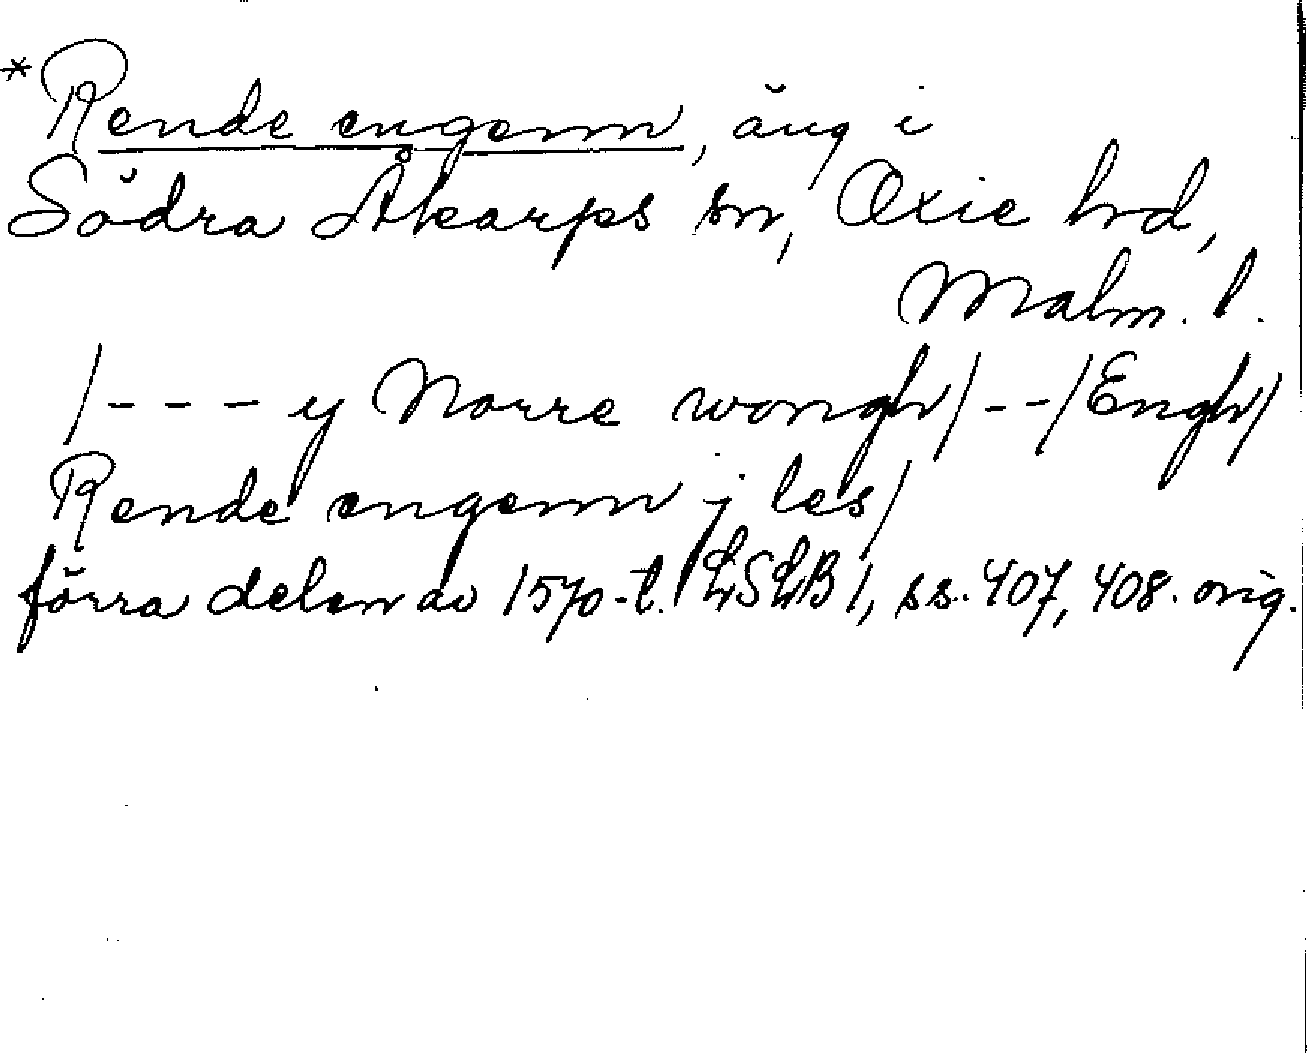 *Rende engenn, äng i
Södra Åkarps sn, Oxie hd,
Malm. l.
/--- y Norre wongh/--/Engh/
Rende engenn j les/
förra delen av 1570-t. LSLB 1, ss. 407, 408. orig.